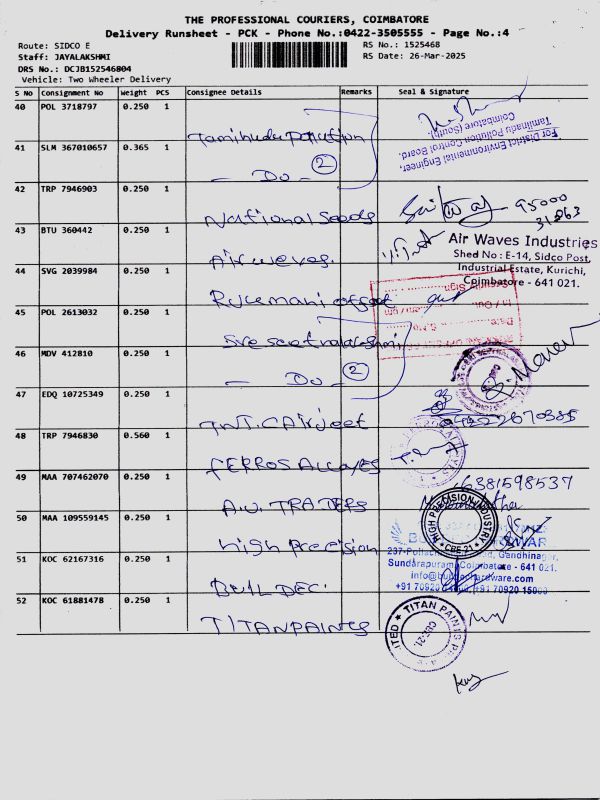 THE PROFESSIONAL COURIERS, COIMBATORE
Delivery Runsheet - PCK - Phone No.:0422-3505555 - Page No.:4
Route: SIDCO E
RS No.: 1525468
Staff: JAYALAKSHMI
RS Date: 26-Mar-2025
DRS No.: DCJB152546804
Vehicle: Two Wheeler Delivery
S No Consignment No Weight PCS Consignee Details Remarks Seal & Signature
40 POL 3718797 0.250 1
For District Environmental Engineer,
Tamilnadu Pollution Control Board,
Coimbatore (South).
41 SLM 367010657 0.365 1
- Do - 2
42 TRP 7946903 0.250 1
National Seeds
95000
31063
43 BTU 360442 0.250 1
Airwaves.
Air Waves Industries
Shed No : E-14, Sidco Post,
Industrial Estate, Kurichi,
Coimbatore - 641 021.
44 SVG 2039984 0.250 1
Rukmani offset
45 POL 2613032 0.250 1
46 MDV 412810 0.250 1
- Do - 2
47 EDQ 10725349 0.250 1
48 TRP 7946830 0.560 1
FERROS ALLOYES
49 MAA 707462070 0.250 1
6381598537
A.U. TRADERS
50 MAA 109559145 0.250 1
High Precision
HIGH PRECISION INDUSTRY
CBE 21
51 KOC 62167316 0.250 1
BUILDEC
Gandhinagar,
Sundarapuram, Coimbatore - 641 021.
52 KOC 61881478 0.250 1
TITANPAINTS
TITAN PAINTS
CBE-21.